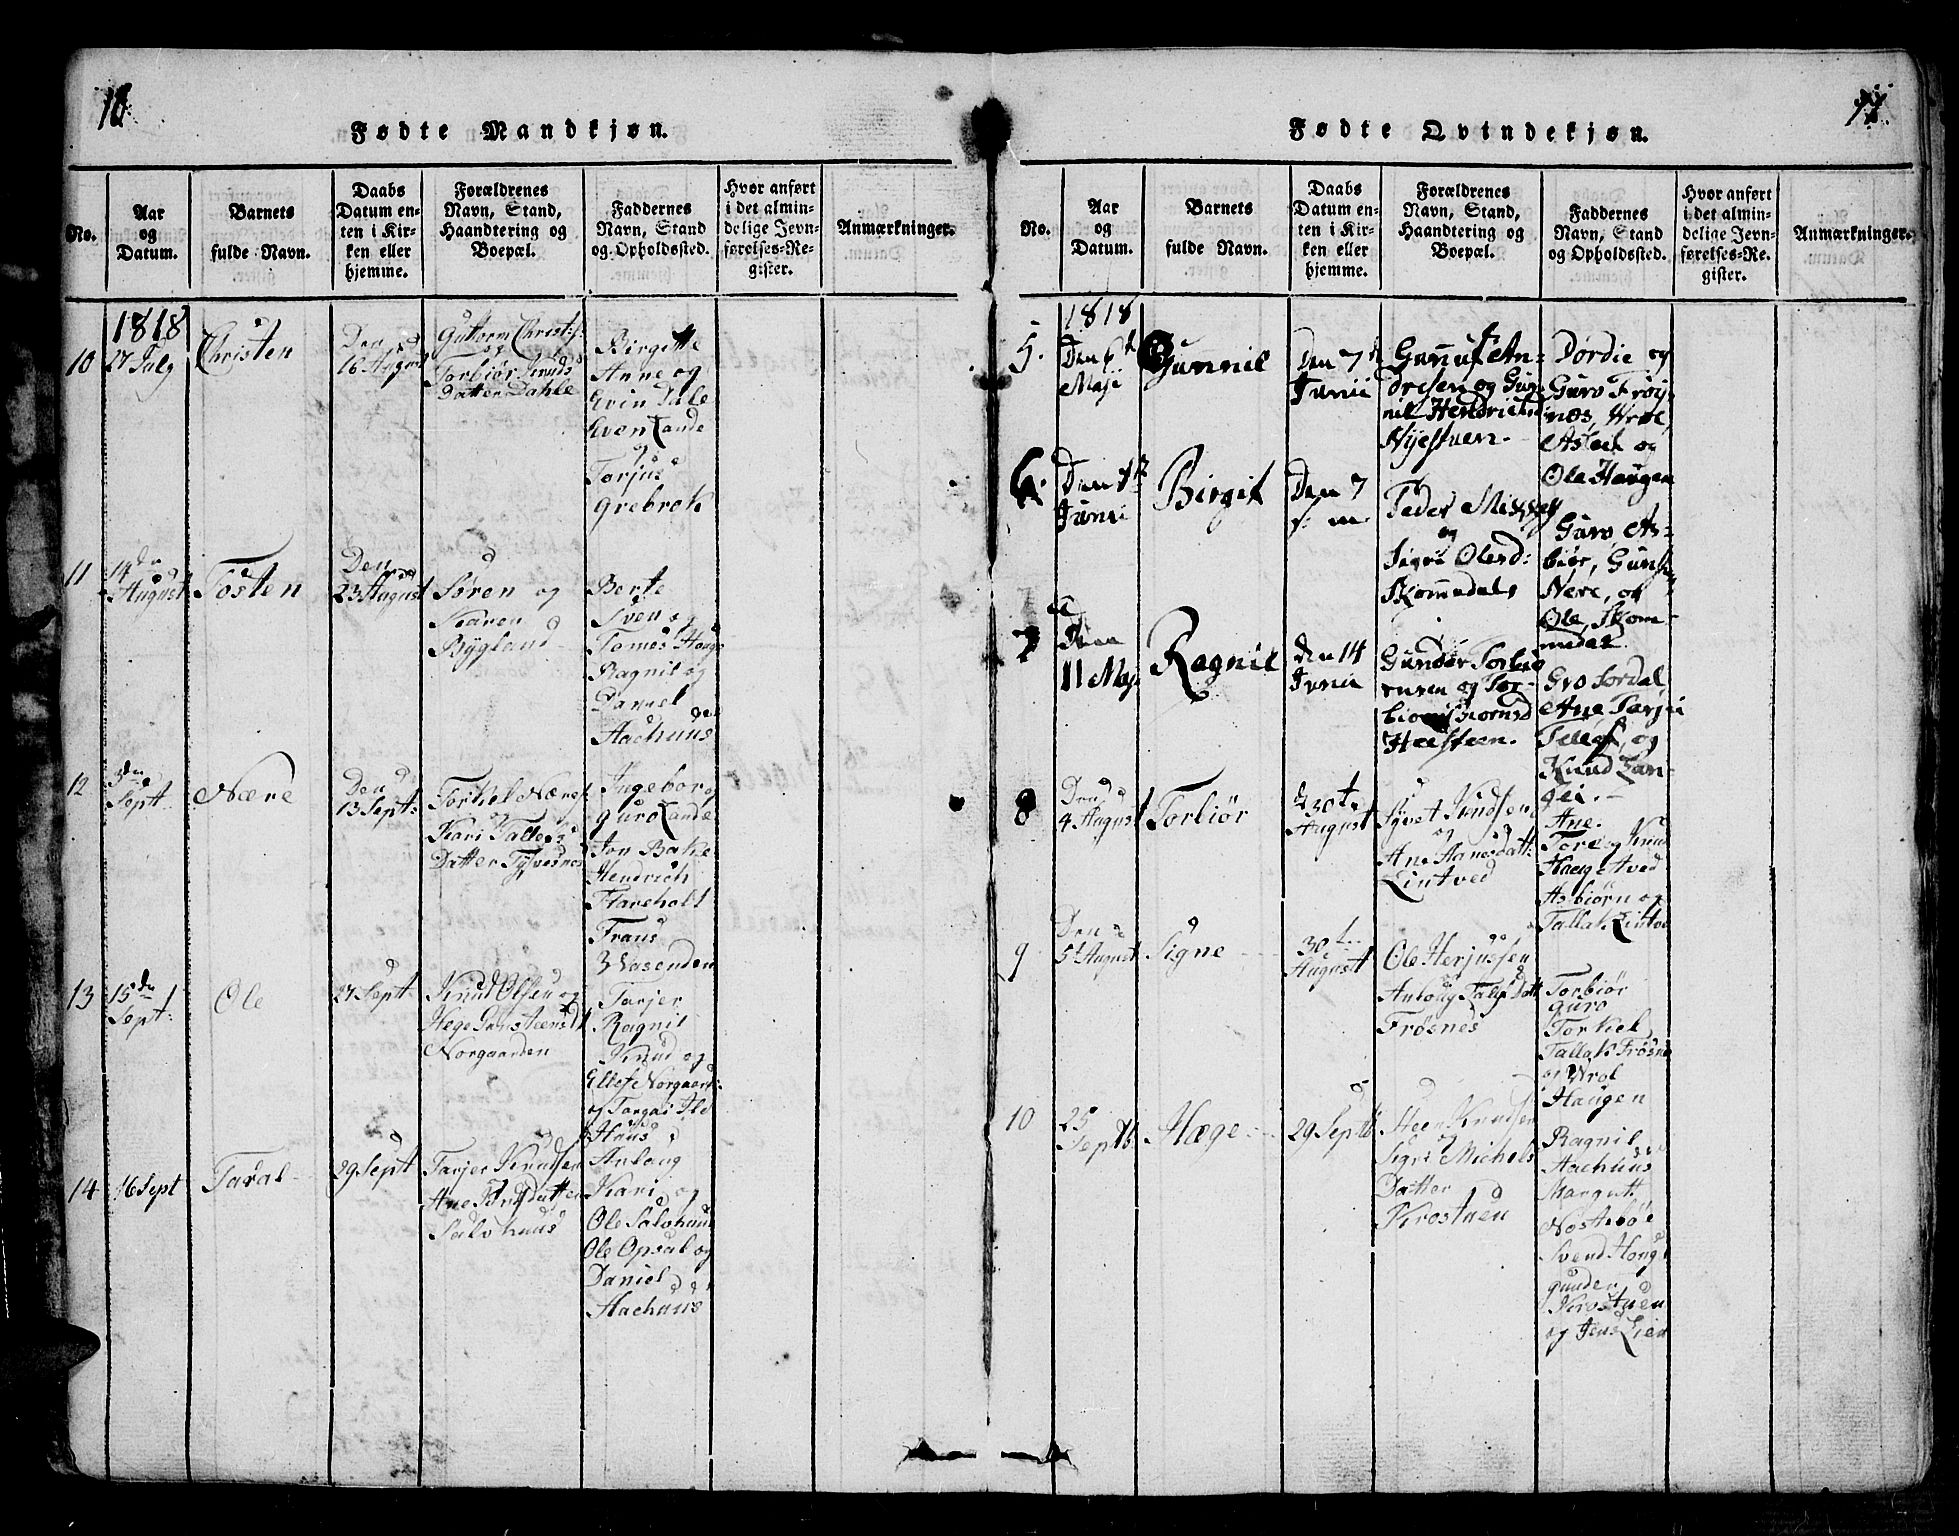 10
Fødte Mandkjøn.
No.
Aar
og
Datum.
Barnets
fulde Navn.
Daabs
Datum en-
ten i Kir-
ken eller
hjemme.
Forældrenes
Navn, Stand,
Haandtering og
Boepæl.
Faddernes
Navn, Stand
og Opholdssted.
Hvor anført
i det almin-
delige Jevn-
førelses-Re-
gister.
Anmærkninger.
1818
10
27 July
Christen
Den
16 August
Guttorm Christ:
og
Torbiør Knuds
Datter Dahle
Birgitte
Anne og
Evin Dale
Even Lande
og
Torjus
Grebrok
11
14 de
August
Tosten
Den
23 August
Søren og
Karen
Bygland
Berte
Sven og
Tomes Houg
Ragnil og
Daniel
Aachuus
12
3 den
Sept.
Nære
Den
13 Sept:
Torkel Næres
og
Kari Tallegs
Datter Tysvesnes
Ingebor og
Guro Lande
Jon Bakke
Hendrich
Flareholt
Frans
Wasenden
13
15 de
Sept:
Ole
27 Sept.
Knud Olsen og
Hege Gunsteensd
Norgaarden
Tarjer
Ragnil
Knud og
Ellef Norgaard
og Torgas Ild
Huus
14
16 Sept
Taral
29 Sept
Tarjer Knudsen
Ane Datter
Salvhuus
Anlaug
Kari og
Ole Salvhuus
Ole Opsal og
Daniel
Aachuus
11.
Fødte Qvindekjøn.
No.
Aar
og
Datum.
Barnets
fulde Navn.
Daabs
Datum en-
ten i Kir-
ken eller
hjemme.
Forældrenes
Navn, Stand,
Haandtering og
Boepæl.
Faddernes
Navn, Stand
og Opholdssted.
Hvor anført
i det almin-
delige Jevn-
førelses-Re-
gister.
Anmærkninger.
1818
5.
Den 6
Maji
Gunnil
Den 7
Junii
Gunnuf An-
dresen og Gun
nil Hendrichs
Nyestuen.
Dørdie og
Guro Frøy-
næs, Wrol,
Asleik og
Ole Haugen
6.
Den 1
Junii
Birgit
Den 7
s: m.
Peder
og
Sigri Olesd:
Skommedal,
Guro As-
biør,
Nere, og
Ole Skom-
medal.
7
Den
11 Maj
Ragnil
den 14
Junii
Gunder Torbiø
rnsen og Tor-
Heisteen.
Gro Tordal
Ane Tarjei
Tellef, og
Knud Lan-
gei.
8
Den
4 August
Torbiør
d 30 te
August
Syvet Knudsen
og
Ane Aanesdatt:
Lintved
Ane.
Tore og Knud
Haugetved
Asbiørn og
Tallak Lintve
9
Den
5 August
Signe
30 te
August
Ole Herjussen
Anlaug Datt
Frøsnes
Torbiør
Guro
Torkiel
Tallak Frøsne
og Wrol
Haugen
10
25
Septb.
Hæge
29 Septb
Knudsen
Sigri Michels
Datter
Krostuen
Ragnil
Aachuus
Margitt
Nostebøe
Svend Houg
gunder
Krostuen
og Jens Lien